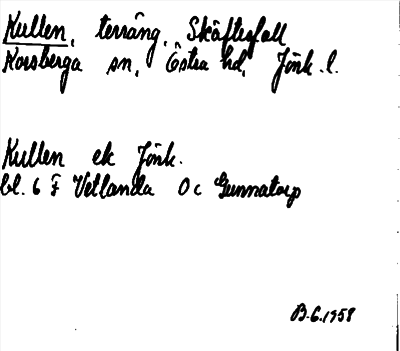 Kullen, terräng, Skäftesfall
Korsberga sn, Östra hd, Jönk. l.
Kullen ek Jönk.
bl. 6 F Vetlanda 0 c Gunnatorp
B.G. 1958